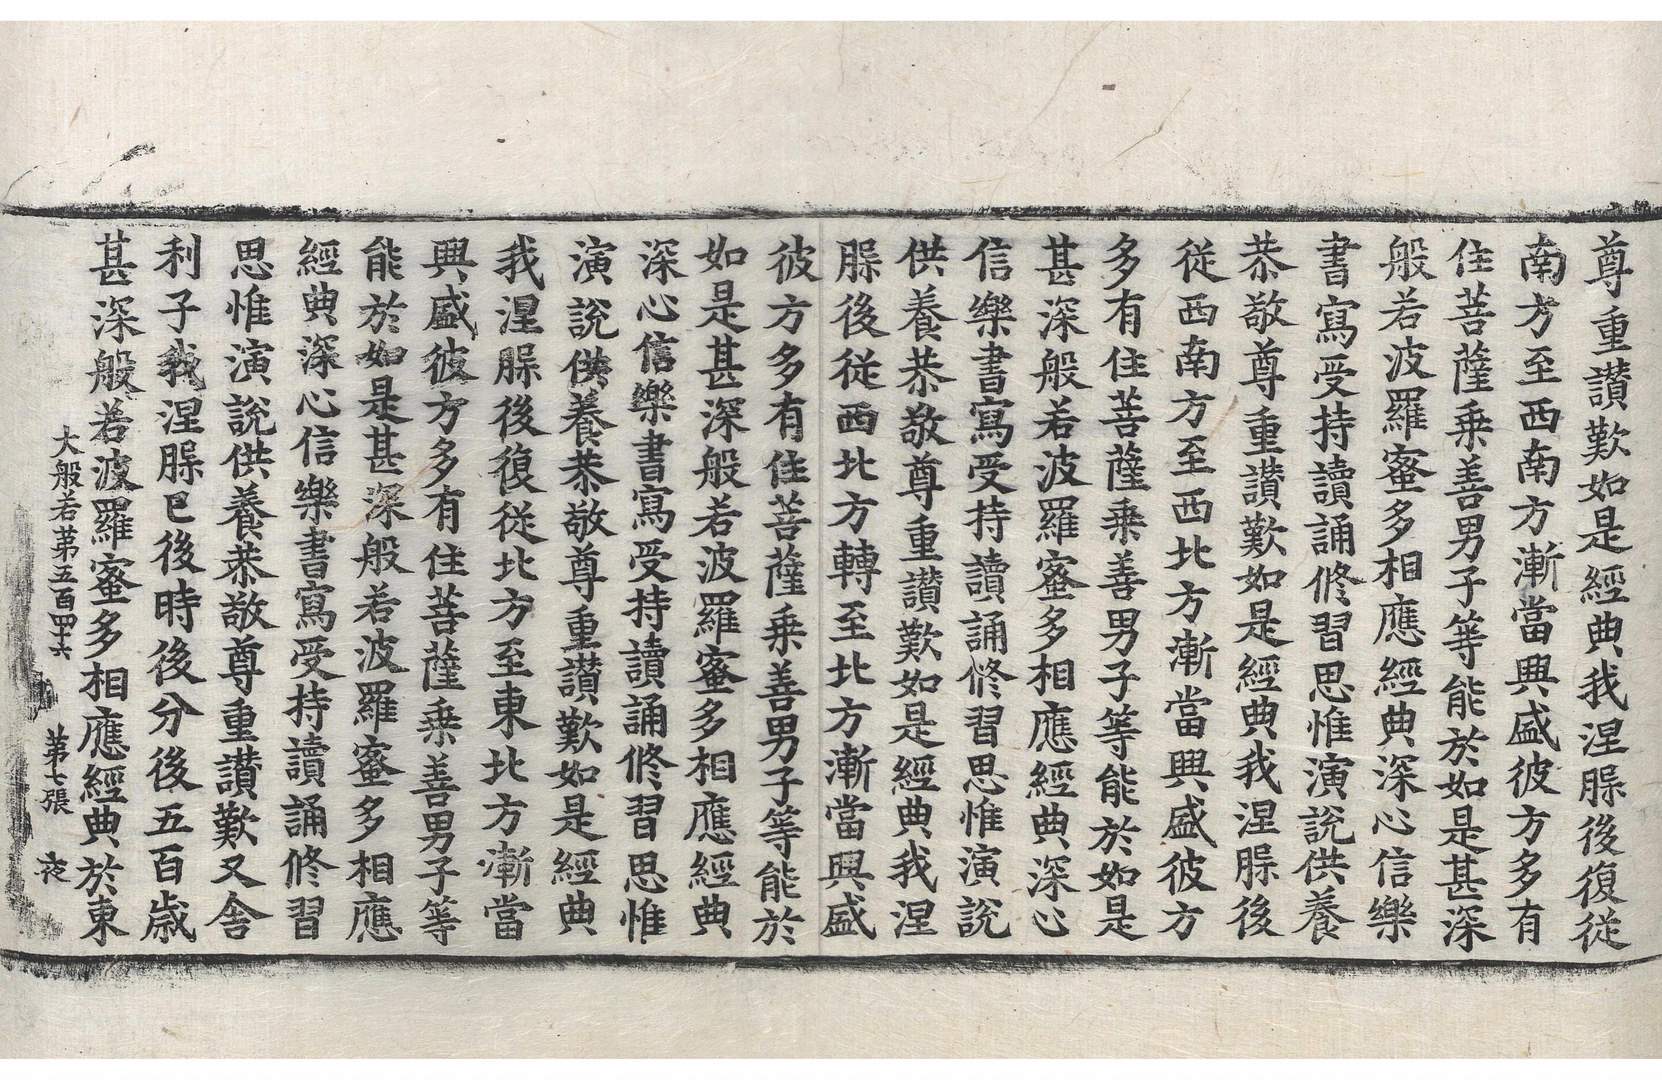 尊重讃歎如是經典我涅槃後復從
南方至西南方漸當興盛彼方多有
住菩薩乘善男子等能於如是甚深
般若波羅蜜多相應經典深心信樂
書寫受持讀誦修習思惟演說供養
恭敬尊重讃歎如是經典我涅槃後
從西南方至西北方漸當興盛彼方
多有住菩薩乘善男子等能於如是
甚深般若波羅蜜多相應經典深心
信樂書寫受持讀誦修習思惟演說
供養恭敬尊重讃歎如是經典我涅
槃後從西北方轉至北方漸當興盛
彼方多有住菩薩乘善男子等能於
如是甚深般若波羅蜜多相應經典
深心信樂書寫受持讀誦修習思惟
演說供養恭敬尊重讃歎如是經典
我涅槃後復從北方至東北方漸當
興盛彼方多有住菩薩乘善男子等
能於如是甚深般若波羅蜜多相應
經典深心信樂書寫受持讀誦修習
思惟演說供養恭敬尊重讃歎又舍
利子我涅槃已後時後分後五百歲
甚深般若波羅蜜多相應經典於東
大般若第五百四十六 第七張 夜